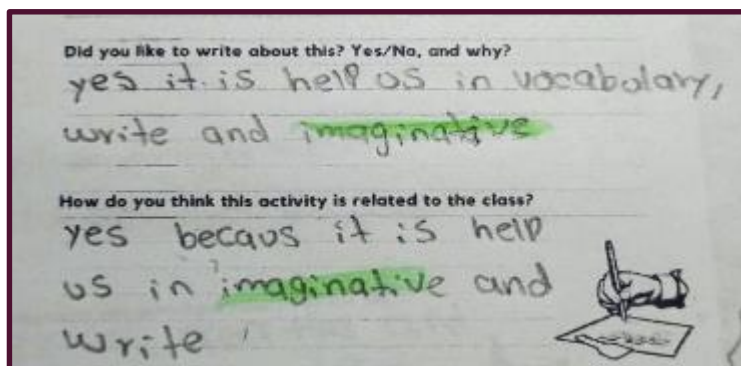 Did you like to write about this? Yes/No, and why?
yes it is help us in vocabulary,
write and imaginative
How do you think this activity is related to the class?
yes becaus it is help
us in imaginative and
write